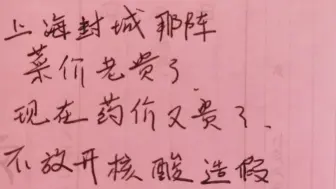 上海封城那阵
菜价老贵了
现在药价又贵了、
不放开核酸造假